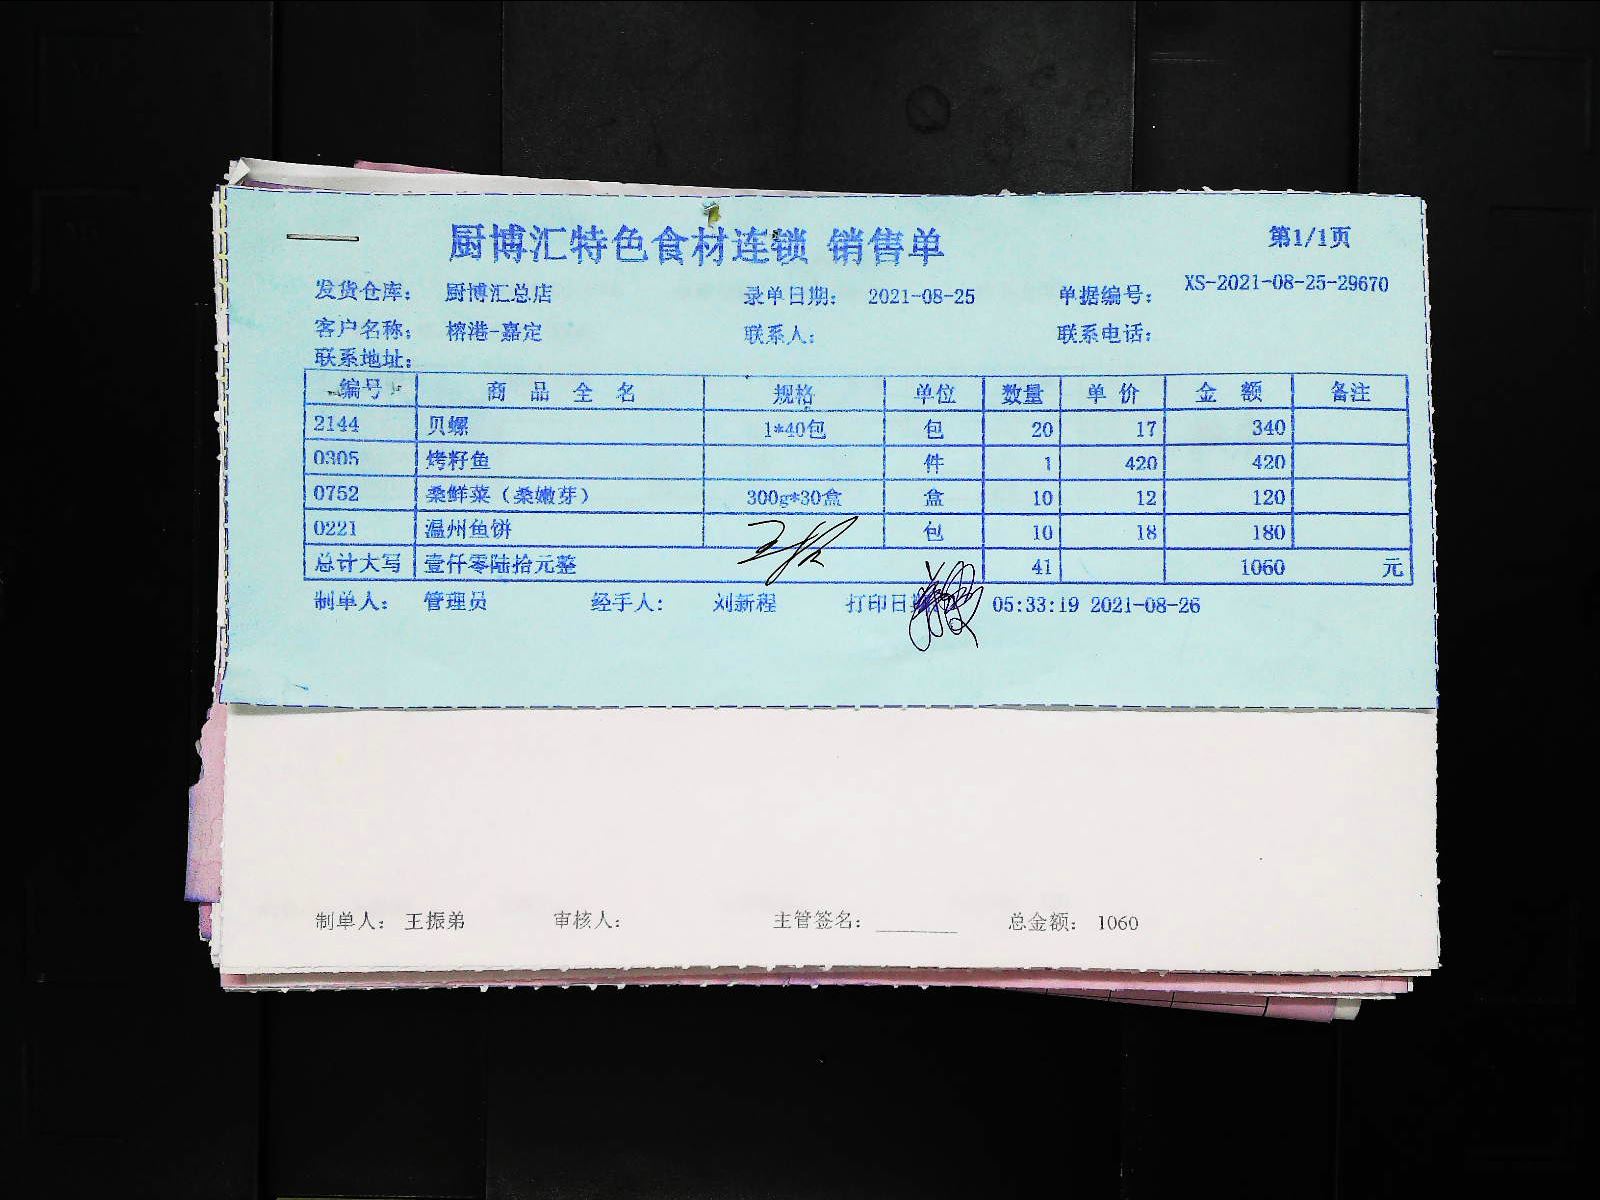 厨博汇特色食材连锁 销售单 第1/1页
发货仓库： 厨博汇总店 录单日期： 2021-08-25 单据编号： XS-2021-08-25-29670
客户名称： 榕港-嘉定 联系人： 联系电话：
联系地址：
编号 商品全名 规格 单位 数量 单价 金额 备注
2144 贝螺 1*40包 包 20 17 340
0305 烤籽鱼 件 1 420 420
0752 桑鲜菜（桑嫩芽） 300g*30盒 盒 10 12 120
0221 温州鱼饼 包 10 18 180
总计大写 壹仟零陆拾元整 41 1060 元
制单人： 管理员 经手人： 刘新程 打印日期 05:33:19 2021-08-26
制单人： 王振弟 审核人： 主管签名： 总金额： 1060